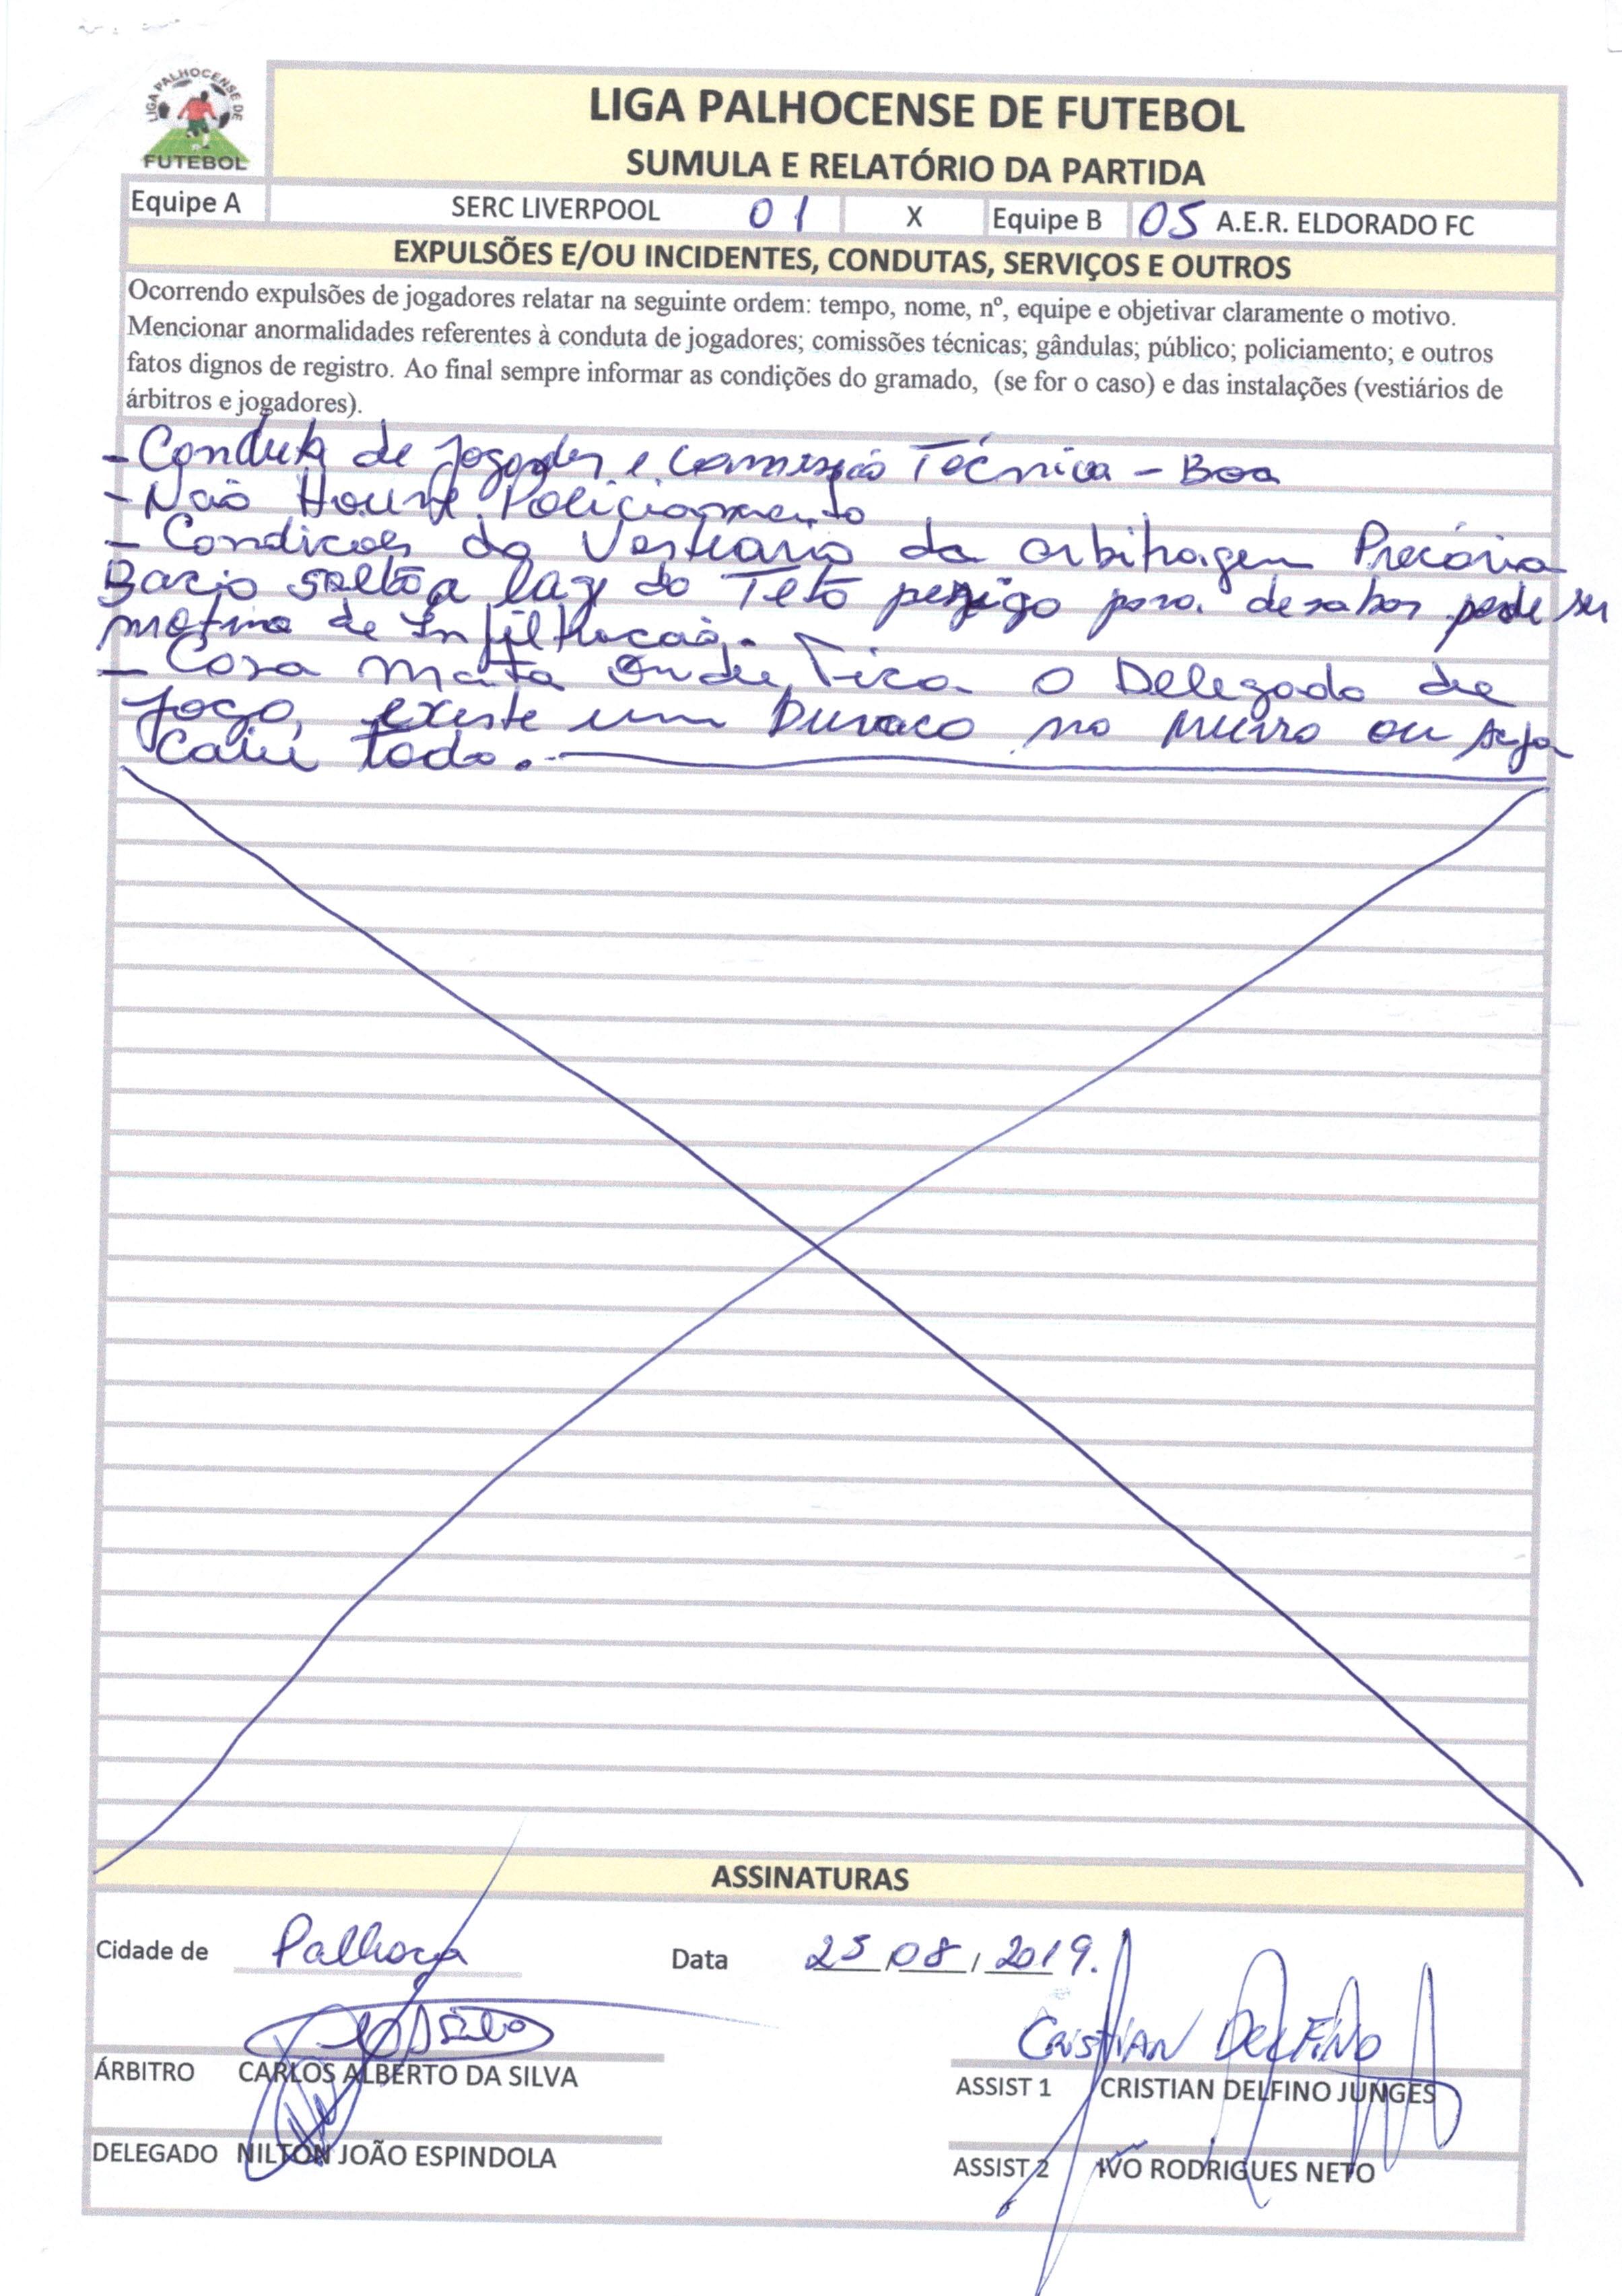 LIGA PALHOCENSE DE FUTEBOL
LIGA PALHOCENSE DE FUTEBOL
SUMULA E RELATÓRIO DA PARTIDA
Equipe A SERC LIVERPOOL 01 X Equipe B 05 A.E.R. ELDORADO FC
EXPULSÕES E/OU INCIDENTES, CONDUTAS, SERVIÇOS E OUTROS
Ocorrendo expulsões de jogadores relatar na seguinte ordem: tempo, nome, nº, equipe e objetivar claramente o motivo.
Mencionar anormalidades referentes à conduta de jogadores; comissões técnicas; gândulas; público; policiamento; e outros
fatos dignos de registro. Ao final sempre informar as condições do gramado, (se for o caso) e das instalações (vestiários de
árbitros e jogadores).
- Conduta de Jogador e Comissão Técnica - Boa
- Não Houve Policiamento
- Condicoes do Vestiario da arbitragem Precária
do Teto perigo para desabar pode ser
motivo de Infiltracão.
- Casa mata Onde Fica o Delegado de
Jogo, existe um Buraco no Muro ou seja
Caiu todo.
ASSINATURAS
Cidade de Palhoça Data 25/08/2019.
CRISTIAN DELFINO
ÁRBITRO CARLOS ALBERTO DA SILVA ASSIST 1 CRISTIAN DELFINO JUNGES
DELEGADO NILTON JOÃO ESPINDOLA ASSIST 2 IVO RODRIGUES NETO